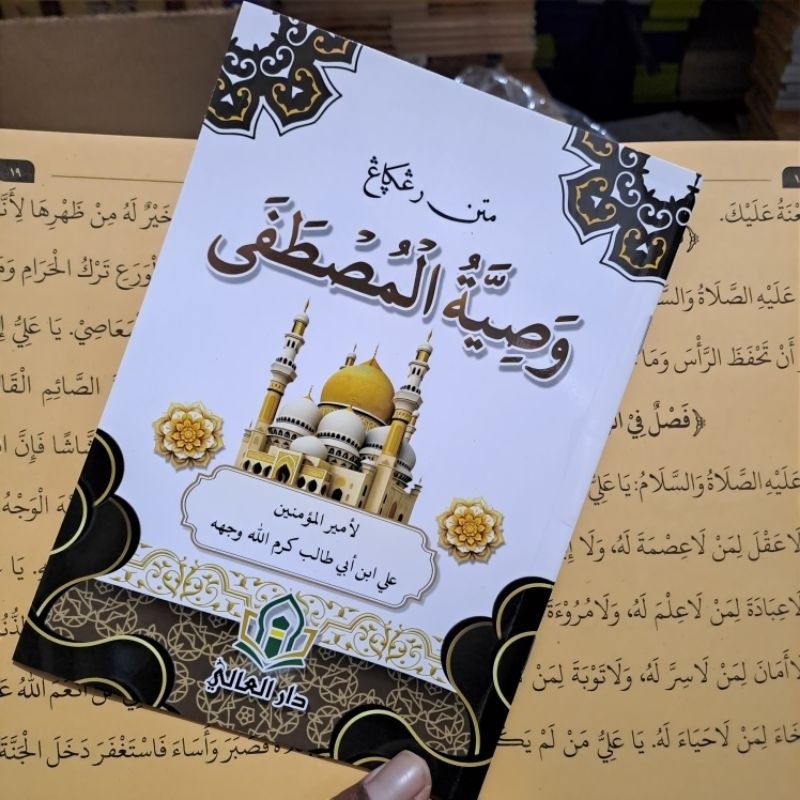 متن رڠكڤڠ
وَصِيَّةُ الْمُصْطَفَى
لأمير المؤمنين
علي ابن أبي طالب كرم الله وجهه
دار العالي
عَلَيْكَ.
عَلَيْهِ الصَّلَاةُ
أَنْ تَحْفَظَ الرَّأْسَ وَمَا
﴿فَصْلٌ فِي
عَلَيْهِ الصَّلَاةُ وَالسَّلَامُ: يَا عَلِيُّ
لَاعَقْلَ لِمَنْ لَاعِصْمَةَ لَهُ، وَلَا
لَاعِبَادَةَ لِمَنْ لَاعِلْمَ لَهُ، وَلَامُرُوْءَةَ
لَاأَمَانَ لِمَنْ لَاسِرَّ لَهُ، وَلَاتَوْبَةَ لِمَنْ
لِمَنْ لَاحَيَاءَ لَهُ. يَا عَلِيُّ مَنْ لَمْ
١٩
خَيْرٌ لَهُ مِنْ ظَهْرِهَا
الْوَرَعِ تَرْكُ الْحَرَامِ
الْمَعَاصِيْ. يَا عَلِيُّ
الصَّائِمِ
فَإِنَّ
الْوَجْهُ
يَا
أَنْعَمَ اللهُ
فَصَبَرَ وَأَسَاءَ فَاسْتَغْفَرَ دَخَلَ الْجَنَّةَ